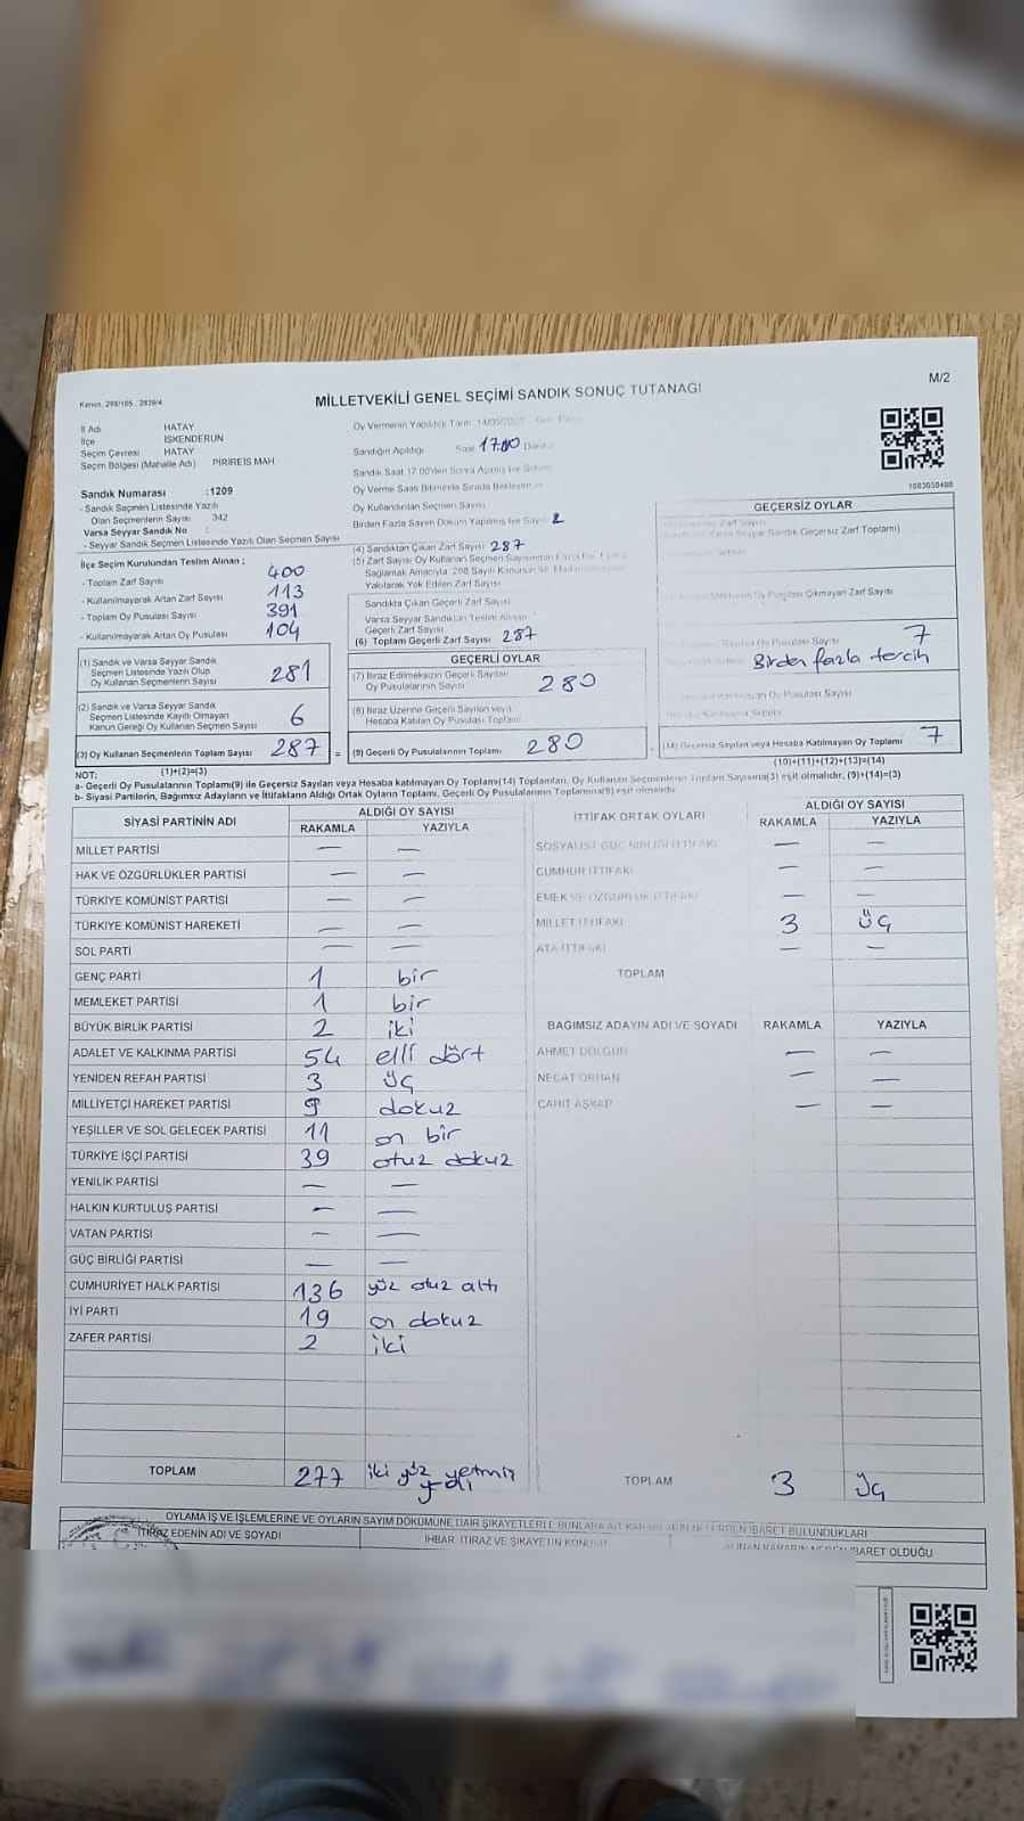 MİLLETVEKİLİ GENEL SEÇİMİ SANDIK SONUÇ TUTANAĞI
M/2
İl Adı HATAY
İlçe İSKENDERUN
Seçim Çevresi HATAY
Seçim Bölgesi (Mahalle Adı) PİRİREİS MAH
Sandık Numarası :1209
- Sandık Seçmen Listesinde Yazılı
Olan Seçmenlerin Sayısı 342
Varsa Seyyar Sandık No :
- Seyyar Sandık Seçmen Listesinde Yazılı Olan Seçmen Sayısı
İlçe Seçim Kurulundan Teslim Alınan :
- Toplam Zarf Sayısı 400
- Kullanılmayarak Artan Zarf Sayısı 113
- Toplam Oy Pusulası Sayısı 391
- Kullanılmayarak Artan Oy Pusulası 104
(1) Sandık ve Varsa Seyyar Sandık
Seçmen Listesinde Yazılı Olup
Oy Kullanan Seçmenlerin Sayısı 281
(2) Sandık ve Varsa Seyyar Sandık
Seçmen Listesinde Kayıtlı Olmayan
Kanun Gereği Oy Kullanan Seçmen Sayısı 6
(3) Oy Kullanan Seçmenlerin Toplam Sayısı 287 =
(1)+(2)=(3)
Sandığın Açıldığı Saat 17.00
Oy Kullandırılan Seçmen Sayısı
Birden Fazla Sayım Döküm Yapılmış İse Sayısı 2
(4) Sandıktan Çıkan Zarf Sayısı 287
Yakılarak Yok Edilen Zarf Sayısı
Sandıkta Çıkan Geçerli Zarf Sayısı
Varsa Seyyar Sandıktan Teslim Alınan
Geçerli Zarf Sayısı
(6) Toplam Geçerli Zarf Sayısı 287
GEÇERLİ OYLAR
(7) İtiraz Edilmeksizin Geçerli Sayılan
Oy Pusulalarının Sayısı 280
(8) İtiraz Üzerine Geçerli Sayılan veya
Hesaba Katılan Oy Pusulası Toplamı
(9) Geçerli Oy Pusulalarının Toplamı 280
GEÇERSİZ OYLAR
7
Birden fazla tercih
(14) Geçersiz Sayılan veya Hesaba Katılmayan Oy Toplamı 7
(10)+(11)+(12)+(13)=(14)
NOT:
a- Geçerli Oy Pusulalarının Toplamı(9) ile Geçersiz Sayılan veya Hesaba katılmayan Oy Toplamı(14) Toplamları, Oy Kullanan Seçmenlerin Toplam Sayısına(3) eşit olmalıdır, (9)+(14)=(3)
b- Siyasi Partilerin, Bağımsız Adayların ve İttifakların Aldığı Ortak Oyların Toplamı, Geçerli Oy Pusulalarının Toplamına(9) eşit olmalıdır
SİYASİ PARTİNİN ADI
ALDIĞI OY SAYISI
RAKAMLA YAZIYLA
MİLLET PARTİSİ — —
HAK VE ÖZGÜRLÜKLER PARTİSİ — —
TÜRKİYE KOMÜNİST PARTİSİ — —
TÜRKİYE KOMÜNİST HAREKETİ — —
SOL PARTİ — —
GENÇ PARTİ 1 bir
MEMLEKET PARTİSİ 1 bir
BÜYÜK BİRLİK PARTİSİ 2 iki
ADALET VE KALKINMA PARTİSİ 54 elli dört
YENİDEN REFAH PARTİSİ 3 üç
MİLLİYETÇİ HAREKET PARTİSİ 9 dokuz
YEŞİLLER VE SOL GELECEK PARTİSİ 11 on bir
TÜRKİYE İŞÇİ PARTİSİ 39 otuz dokuz
YENİLİK PARTİSİ — —
HALKIN KURTULUŞ PARTİSİ — —
VATAN PARTİSİ — —
GÜÇ BİRLİĞİ PARTİSİ — —
CUMHURİYET HALK PARTİSİ 136 yüz otuz altı
İYİ PARTİ 19 on dokuz
ZAFER PARTİSİ 2 iki
TOPLAM 277 iki yüz yetmiş
yedi
İTTİFAK ORTAK OYLARI
ALDIĞI OY SAYISI
RAKAMLA YAZIYLA
SOSYALİST GÜÇ BİRLİĞİ İTTİFAKI — —
CUMHUR İTTİFAKI — —
EMEK VE ÖZGÜRLÜK İTTİFAKI — —
MİLLET İTTİFAKI 3 üç
ATA İTTİFAKI — —
TOPLAM
BAĞIMSIZ ADAYIN ADI VE SOYADI RAKAMLA YAZIYLA
AHMET — —
NECAT ORHAN — —
CAHİT — —
TOPLAM 3 üç
OYLAMA İŞ VE İŞLEMLERİNE VE OYLARIN SAYIM DÖKÜMÜNE DAİR ŞİKAYETLERLE
İTİRAZ EDENİN ADI VE SOYADI
İHBAR İTİRAZ VE ŞİKAYETİN KONUSU